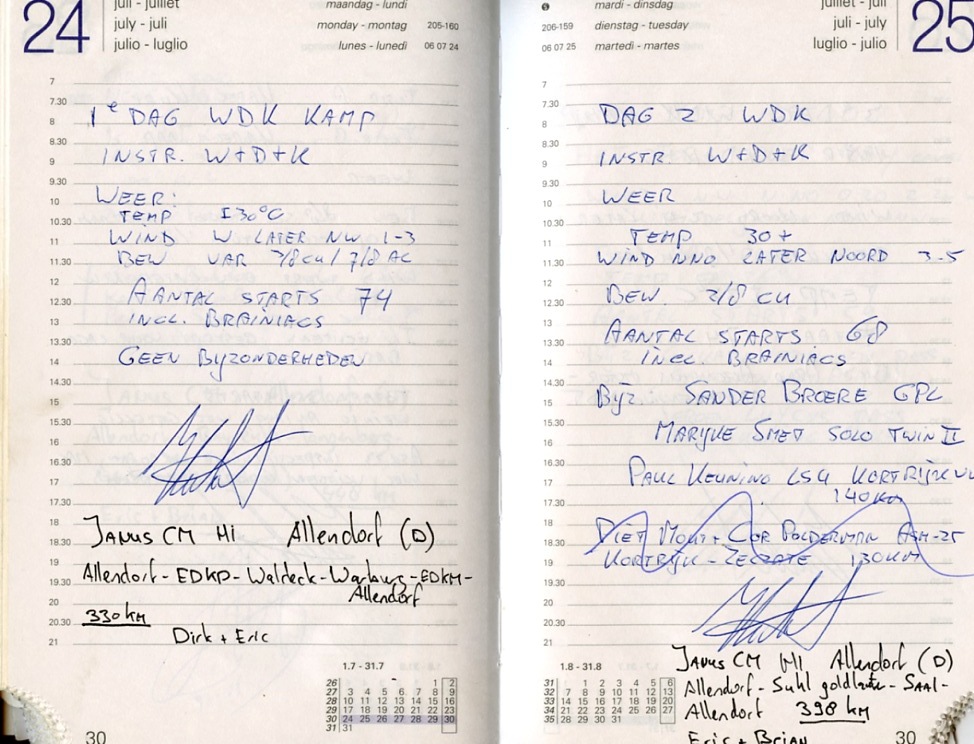 24
juli - juillet
july - juli
julio - luglio
maandag - lundi
monday - montag 205-160
lunes - lunedì 06 07 24
7
7.30
8
8.30
9
9.30
10
10.30
11
11.30
12
12.30
13
13.30
14
14.30
15
15.30
16
16.30
17
17.30
18
18.30
19
19.30
20
20.30
21
1e DAG WDK KAMP
INSTR. W+D+K
WEER:
TEMP ±30°C
WIND W LATER NW 1-3
BEW VAR 3/8 CU / 7/8 AC
AANTAL STARTS 74
INCL. BRAINIACS
GEEN BYZONDERHEDEN
JANUS CM HI Allendorf (D)
Allendorf - EDKP - Waldeck - Warburg - EDKM -
Allendorf
330 km
Dirk + Eric
1.7 - 31.7
26 1 2
27 3 4 5 6 7 8 9
28 10 11 12 13 14 15 16
29 17 18 19 20 21 22 23
30 24 25 26 27 28 29 30
31 31
30
mardi - dinsdag
206-159 dienstag - tuesday
06 07 25 martedì - martes
juillet - juli
juli - july
luglio - julio
25
7
7.30
8
8.30
9
9.30
10
10.30
11
11.30
12
12.30
13
13.30
14
14.30
15
15.30
16
16.30
17
17.30
18
18.30
19
19.30
20
20.30
21
DAG 2 WDK
INSTR W+D+K
WEER
TEMP 30+
WIND NNO LATER NOORD 3-5
BEW. 2/8 CU
AANTAL STARTS 68
INCL. BRAINIACS
Byz. SANDER BROERE GPL
MARYKE SMET SOLO TWIN II
PAUL KEUNING LS4 KORTRIJK
140KM
PIET + COR POLDERMAN ASH-25
KORTRIJK - ZELZATE 130KM
JANUS CM HI Allendorf (D)
Allendorf - Suhl goldlauter - Saal-
Allendorf 398 km
Eric + Brian
1.8 - 31.8
31 1 2 3 4 5 6
32 7 8 9 10 11 12 13
33 14 15 16 17 18 19 20
34 21 22 23 24 25 26 27
35 28 29 30 31
30